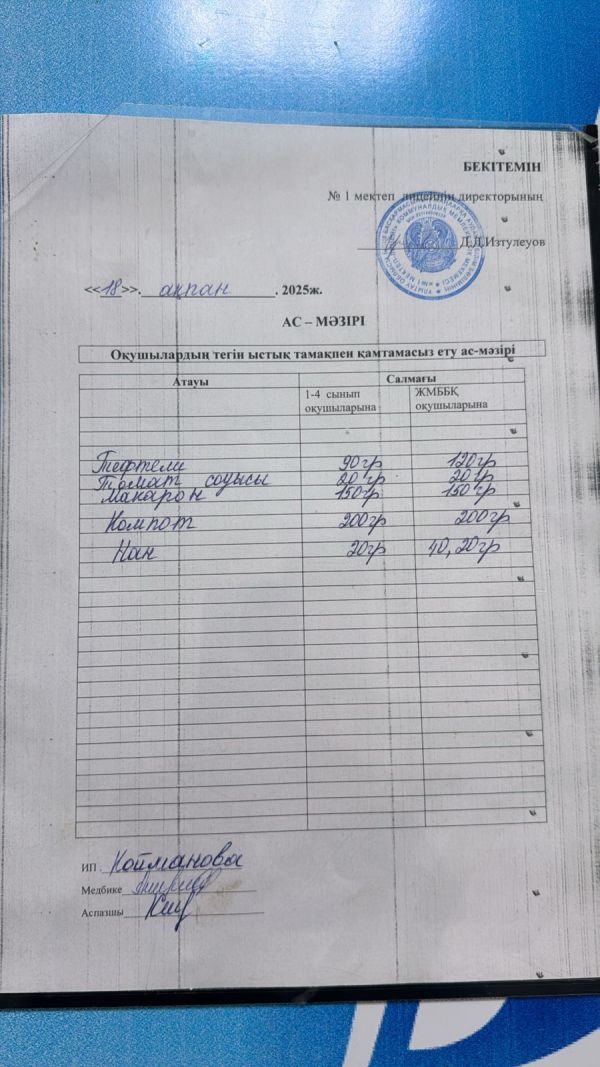 БЕКІТЕМІН
№ 1 мектеп лицейінің директорының
Д.Д.Изтулеуов
<<18>>. ақпан. 2025ж.
АС – МӘЗІРІ
Оқушылардың тегін ыстық тамақпен қамтамасыз ету ас-мәзірі
Атауы Салмағы
1-4 сынып оқушыларына ЖМББҚ оқушыларына
Тефтели 90гр 120гр
Томат соусы 20гр 20гр
Макарон 150гр 150гр
Компот 200гр 200гр
Нан 20гр 40, 20гр
ИП Койманова
Медбике
Аспазшы